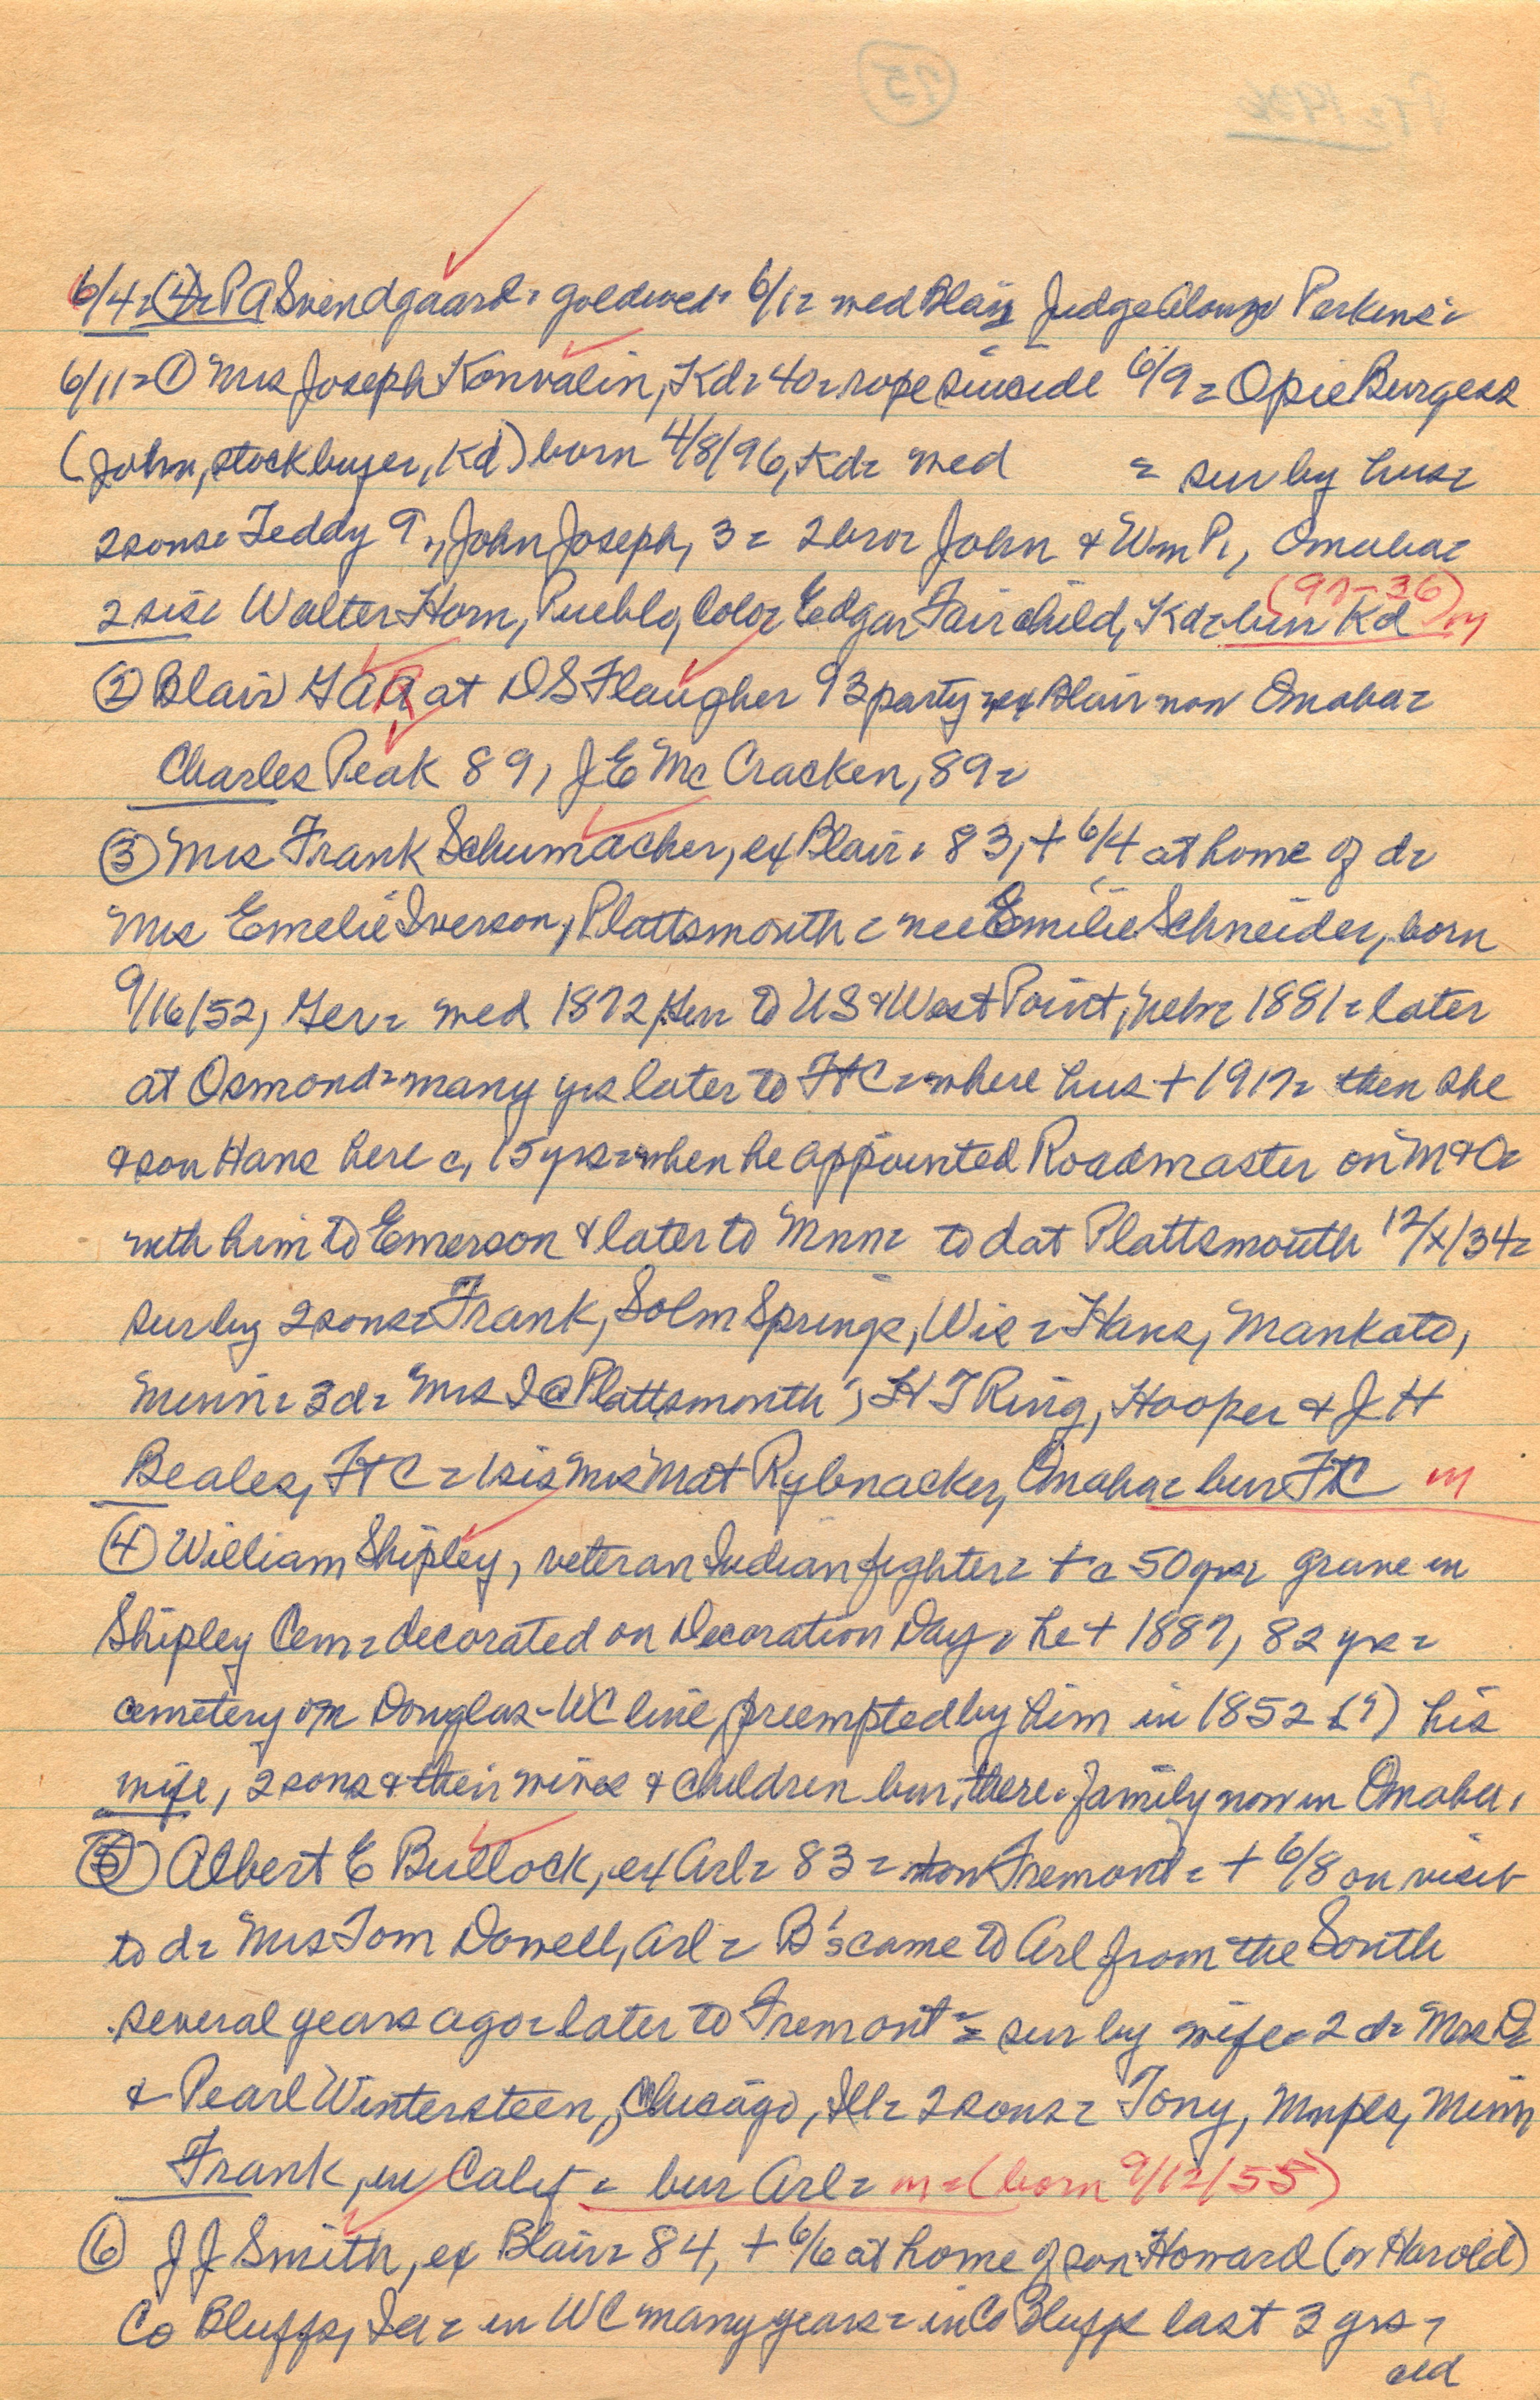 6/4 = (4) = P A Svendgaard = goldwed = 6/1 = med Blair Judge Alonzo Perkins =
6/11 = ① Mrs Joseph Konvalin, Kd = 40 = rope suicide 6/9 = Opie Burgess
(John, stockbuyer, Kd) born 4/8/96, Kd = med = sur by hus =
2 sons = Teddy 9, John Joseph, 3 = 2 bro = John & Wm P, Omaha =
2 sis = Walter Horn, Pueblo, Colo = Edgar Fairchild, Kd = bur Kd m
(97-36)
② Blair GAR at D S Flaugher 93 party = ex Blair now Omaha =
Charles Peak 89, J E McCracken, 89 =
③ Mrs Frank Schumacher, ex Blair = 83, + 6/4 at home of d =
Mrs Emelie Iverson, Plattsmouth = nee Emilie Schneider, born
9/16/52, Ger = med 1872, Ger = to US & West Point, Nebr = 1881 = later
at Osmond = many yrs later to FtC = where hus + 1917 = then she
& son Hans here c, 15 yrs = when he appointed Roadmaster on M&O =
with him to Emerson & later to Minn = to d at Plattsmouth 12/x/34 =
sur by 2 sons = Frank, Solm Springs, Wis = Hans, Mankato,
Minn = 3 d = Mrs I @ Plattsmouth, H T Ring, Hooper & J H
Beales, FtC = 1 sis Mrs Mat Rybnacker, Omaha = bur FtC m
④ William Shipley, veteran Indian fighter = + c 50 yrs = grave in
Shipley Cem = decorated on Decoration Day = he + 1887, 82 yrs =
cemetery on Douglas-WC line, preempted by him in 1852 (?) his
wife, 2 sons & their wives & children bur, there = family now in Omaha =
⑤ Albert E Bullock, ex Arl = 83 = now Fremont = + 6/8 on visit
to d = Mrs Tom Dowell, Arl = B's came to Arl from the South
several years ago = later to Fremont = sur by wife = 2 d = Mrs D =
& Pearl Wintersteen, Chicago, Ill = 2 sons = Tony, Mnpls, Minn
Frank, in Calif = bur Arl = m = (born 9/12/55)
⑥ J J Smith, ex Blair = 84, + 6/6 at home of son Howard (or Harold)
Co Bluffs, Ia = in WC many years = in Co Bluffs last 3 yrs =
old